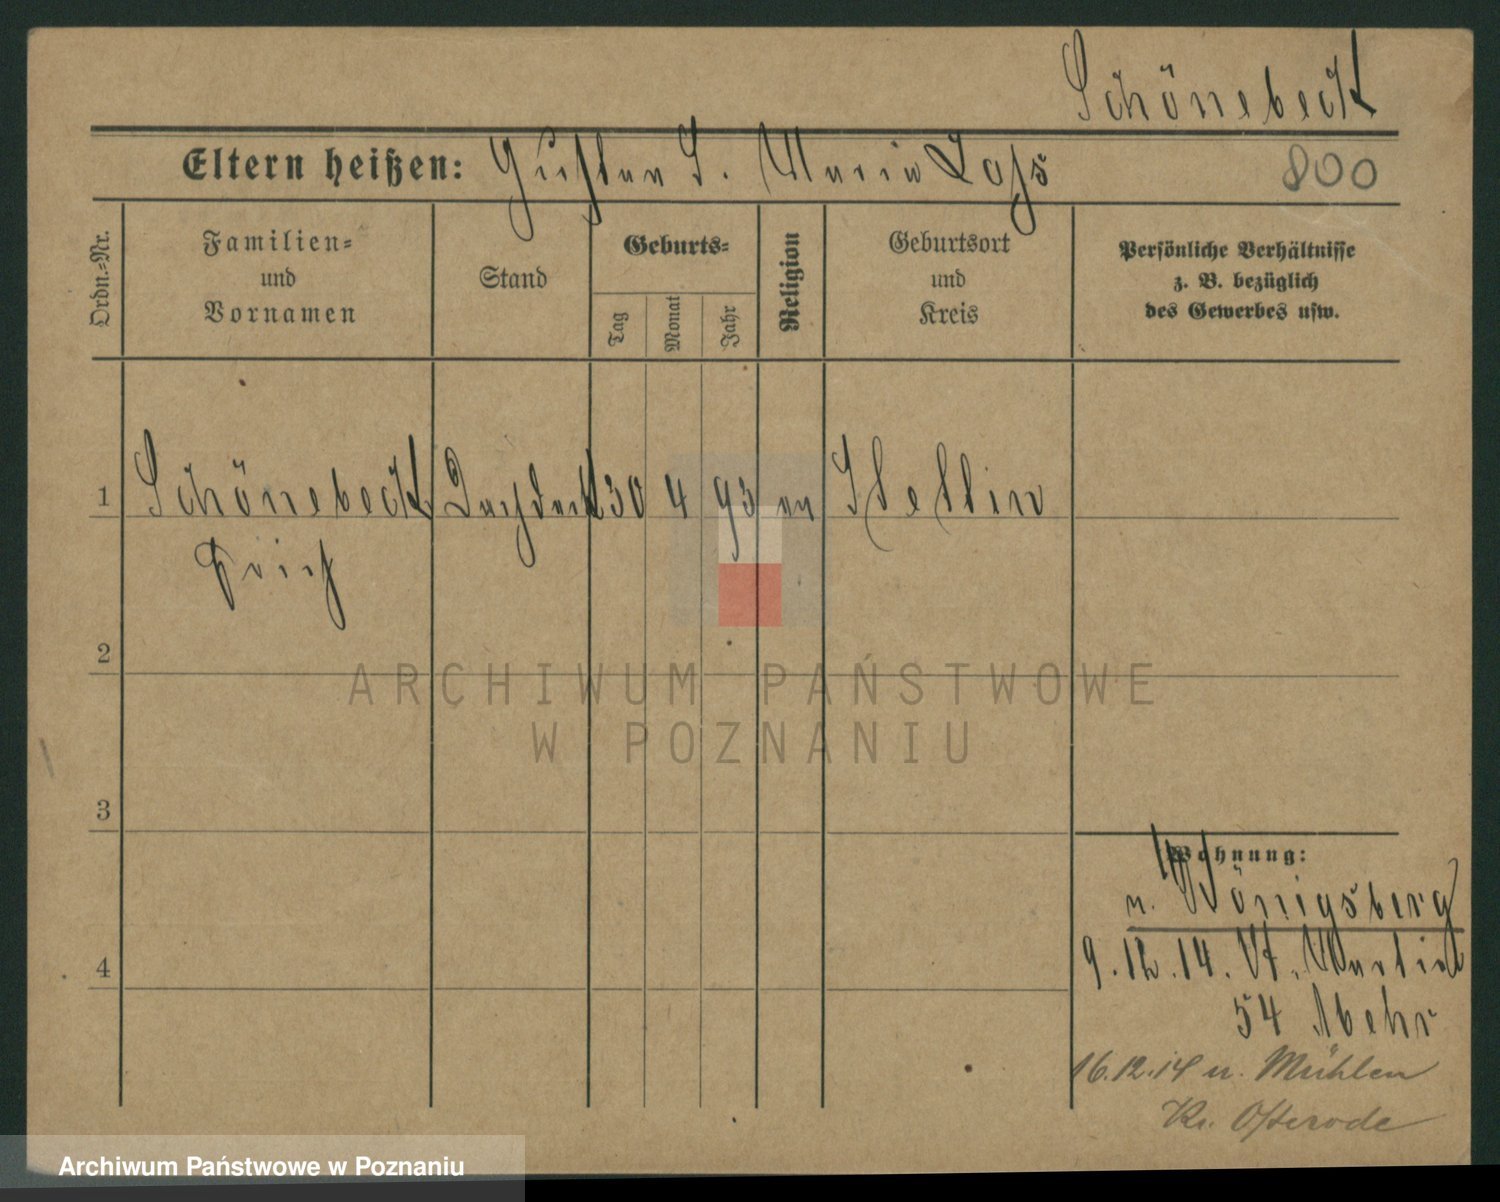 Schönebeck
Eltern heißen: Gustav S. Maria Loſs
800
Ordn.=Nr.
Familien=
und
Vornamen
Stand
Geburts=
Tag
Monat
Jahr
Religion
Geburtsort
und
Kreis
Persönliche Verhältnisse
z. B. bezüglich
des Gewerbes usw.
1 Schönebeck 30 4 93 ev Stettin
Erich
2
ARCHIWUM PAŃSTWOWE
W POZNANIU
3
Wohnung:
n. Königsberg
9.12.14. St. Martin
54
16.12.14 n. Mühlen
Kr. Osterode
4
Archiwum Państwowe w Poznaniu